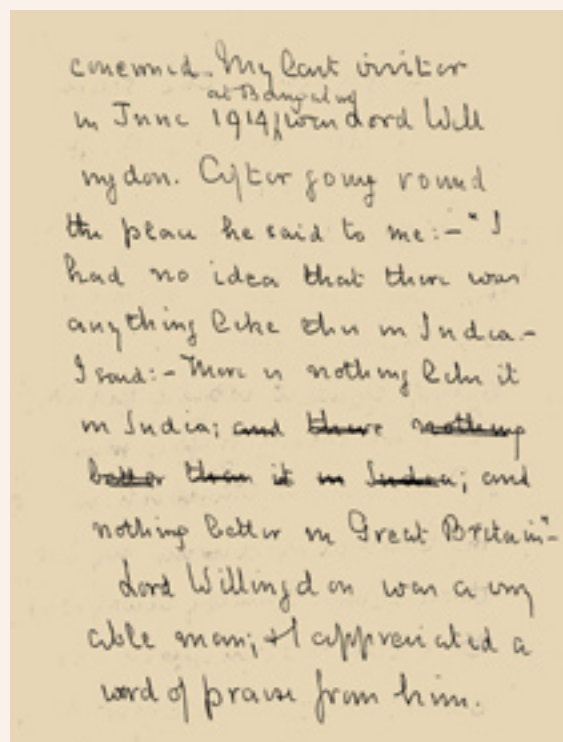 concerned. My last visitor
at Bangalore
in June 1914, was Lord Will
ngdon. After going round
the place he said to me:- "I
had no idea that there was
anything like this in India.-
I said:- There is nothing like it
in India; and there nothing
better than it in India; and
nothing better in Great Britain"-
Lord Willingdon was a very
able man; & I appreciated a
word of praise from him.